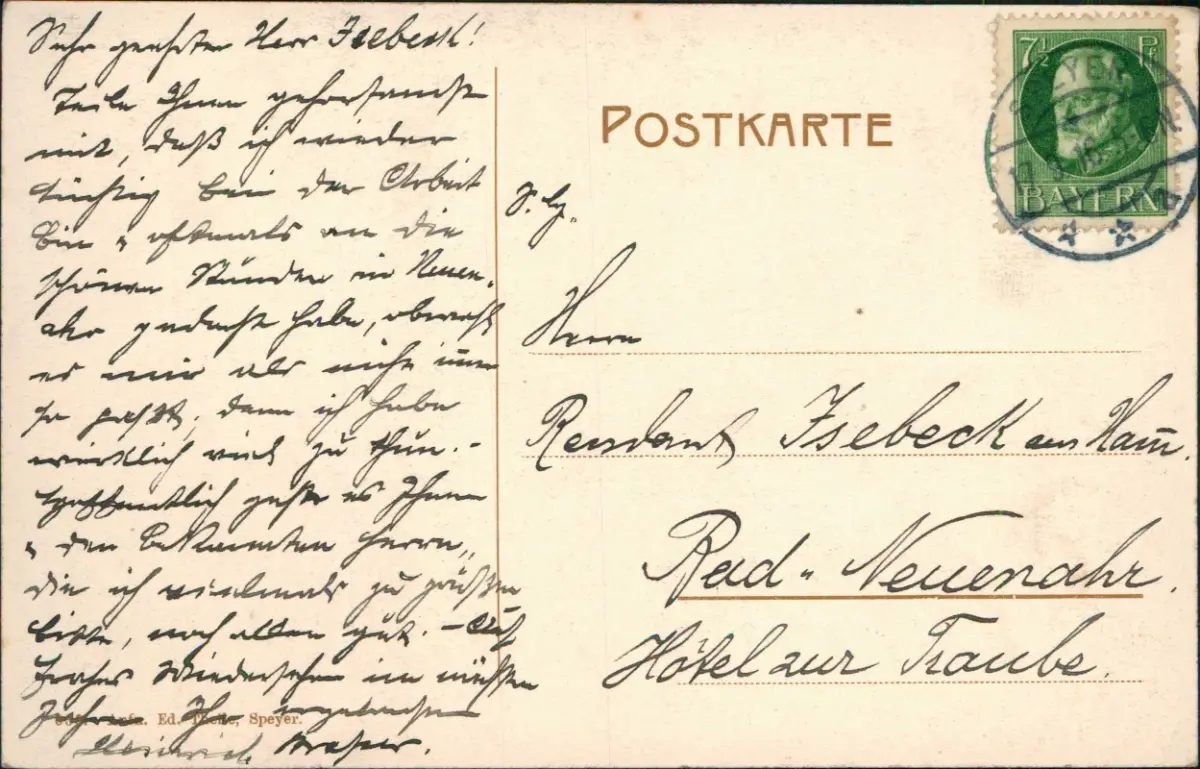 Sehr geehrter Herr Isebeck!
Teile Ihnen gehorsamst
mit, daß ich wieder
tüchtig bei der Arbeit
bin u. oftmals an die
schönen Stunden in Neuen-
ahr gedacht habe, obwohl
es mir als nicht immer
so paßt, denn ich habe
wirklich viel zu thun. -
Hoffentlich geht es Ihnen
u. den bekannten Herrn,
die ich vielmals zu grüßen
bitte, noch allen gut. - Auf
frohes Wiedersehen im nächsten
Jahre Ihr ergebenster
Heinrich
Ed. Speyer.
POSTKARTE
7½ Pf
BAYERN
SPEYER
S. Hg.
Herrn
Rendant Isebeck aus Ham̅.
Bad-Neuenahr.
Hôtel zur Traube.